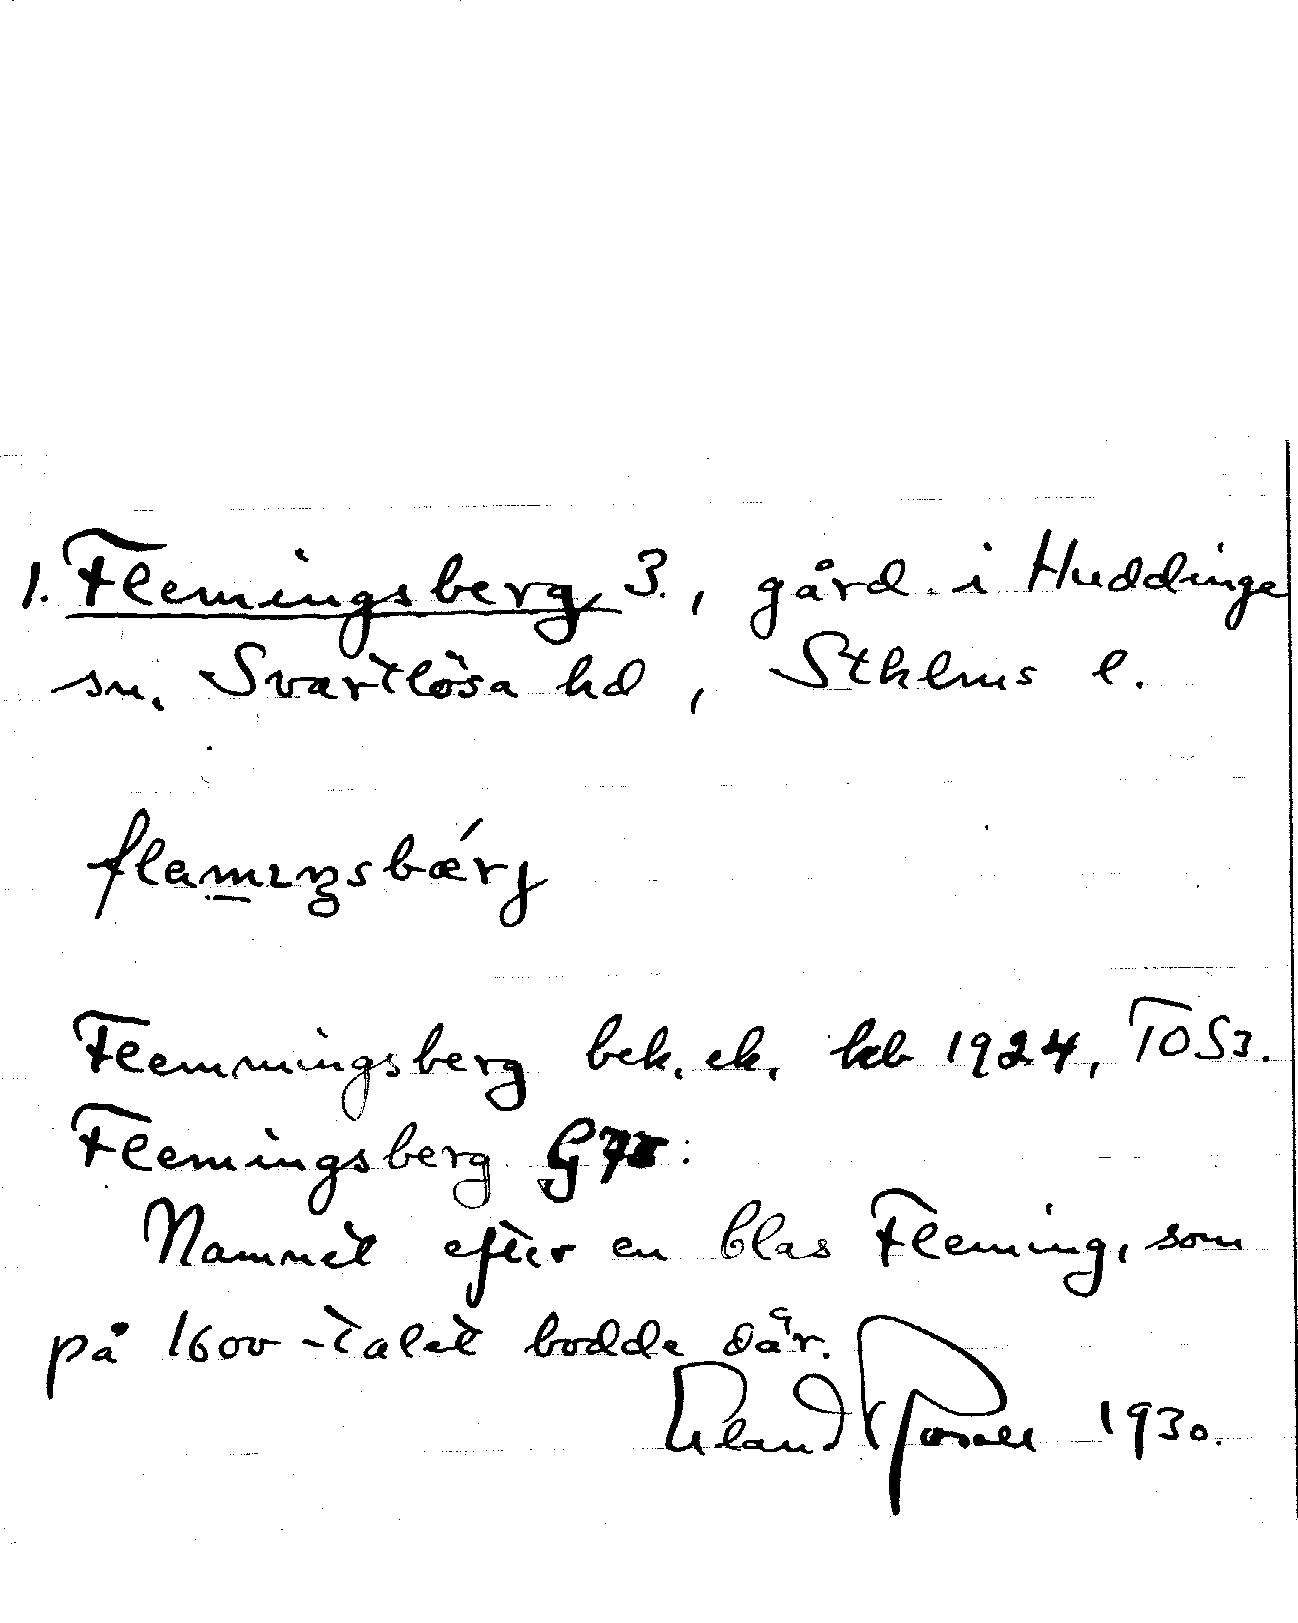 1. Flemingsberg 3., gård i Huddinge
sn. Svartlösa hd, Sthlms l.
flamıŋsbǽrj
Flemmingsberg bek. ek. kb 1924, TOS3.
Flemingsberg
Namnet efter en Clas Fleming, som
på 1600-talet bodde där.
Erland Rosell 1930.